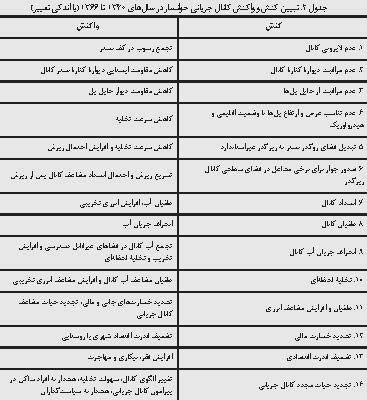 جدول ۲. تبیین کنش و واکنش کانال جریانی خوانسار در سال‌های ۱۳۴۰ تا ۱۳۶۶ (با اندکی تغییر)
کنش واکنش
۱. عدم لایروبی کانال تجمع رسوب در کف بستر
۲. عدم مراقبت از دیوارۀ کنارۀ کانال کاهش مقاومت ایستایی دیوارۀ کنارۀ بستر کانال
۳. عدم مراقبت از حایل پل‌ها کاهش مقاومت دیوار حایل پل
۴. عدم تناسب عرض و ارتفاع پل‌ها با وضعیت اقلیمی و
هیدرولوژیک کاهش سرعت تخلیه
۵. تبدیل فضای روگذر بستر به زیرگذر غیراستاندارد کاهش سرعت تخلیه و افزایش احتمال ریزش
۶. صدور جواز برای برخی مشاغل در فضای سطحی کانال
زیرگذر تسریع ریزش و احتمال انسداد مضاعف کانال پس از ریزش
۷. انسداد کانال طغیان آب، افزایش انرژی تخریبی
۸. طغیان کانال انحراف جریان آب
۹. انحراف جریان آب کانال تجمع آب کانال در فضاهای غیرقابل دسترسی و افزایش
تخریب و تخلیۀ لحظه‌ای
۱۰. تخلیۀ لحظه‌ای طغیان مضاعف آب کانال و افزایش مضاعف انرژی تخریبی
۱۱. طغیان و افزایش مضاعف انرژی تشدید خسارت‌های جانی و مالی، تجدید حیات مضاعف
کانال جریانی
۱۲. تشدید خسارت مالی تضعیف قدرت اقتصاد شهری یا روستایی
۱۳. تضعیف قدرت اقتصادی افزایش فقر، بیکاری و مهاجرت
۱۴. تجدید حیات مجدد کانال جریانی تغییر الگوی کانال، سهولت تخلیه، هشدار به افراد ساکن در
پیرامون کانال جریانی، هشدار به سیاست‌گذاران